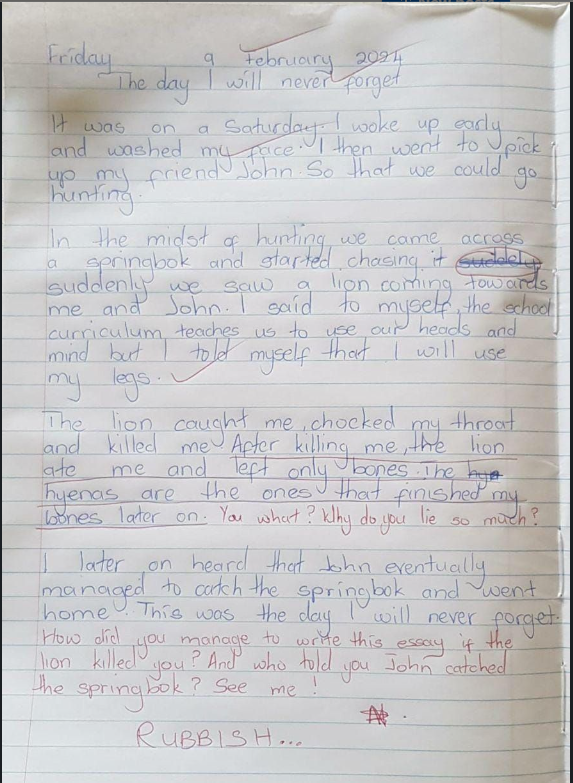 Friday 9 February 2024
The day I will never forget
It was on a Saturday. I woke up early
and washed my face. I then went to pick
up my friend John. So that we could go
hunting.
In the midst of hunting we came across
a springbok and started chasing it suddely
suddenly we saw a lion coming towards
me and John. I said to myself, the school
curriculum teaches us to use our heads and
mind but I told myself that I will use
my legs.
The lion caught me, chocked my throat
and killed me. After killing me, the lion
ate me and left only bones. The hye
hyenas are the ones that finished my
bones later on. You what? Why do you lie so much?
I later on heard that John eventually
managed to catch the springbok and went
home. This was the day I will never forget.
How did you manage to write this essay if the
lion killed you? And who told you John catched
the springbok? See me!
RUBBISH...